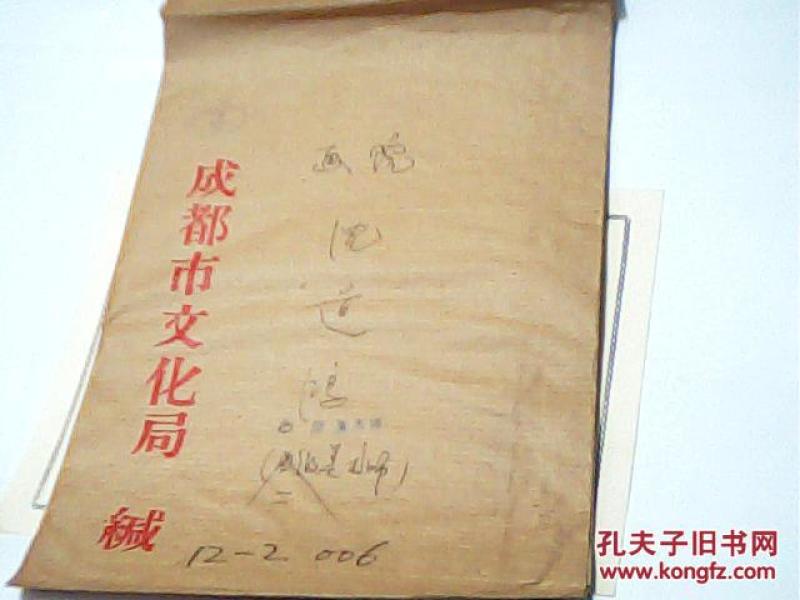 成都市文化局 缄
画院
沈道鸿
12-2 006
孔夫子旧书网
www.kongfz.com